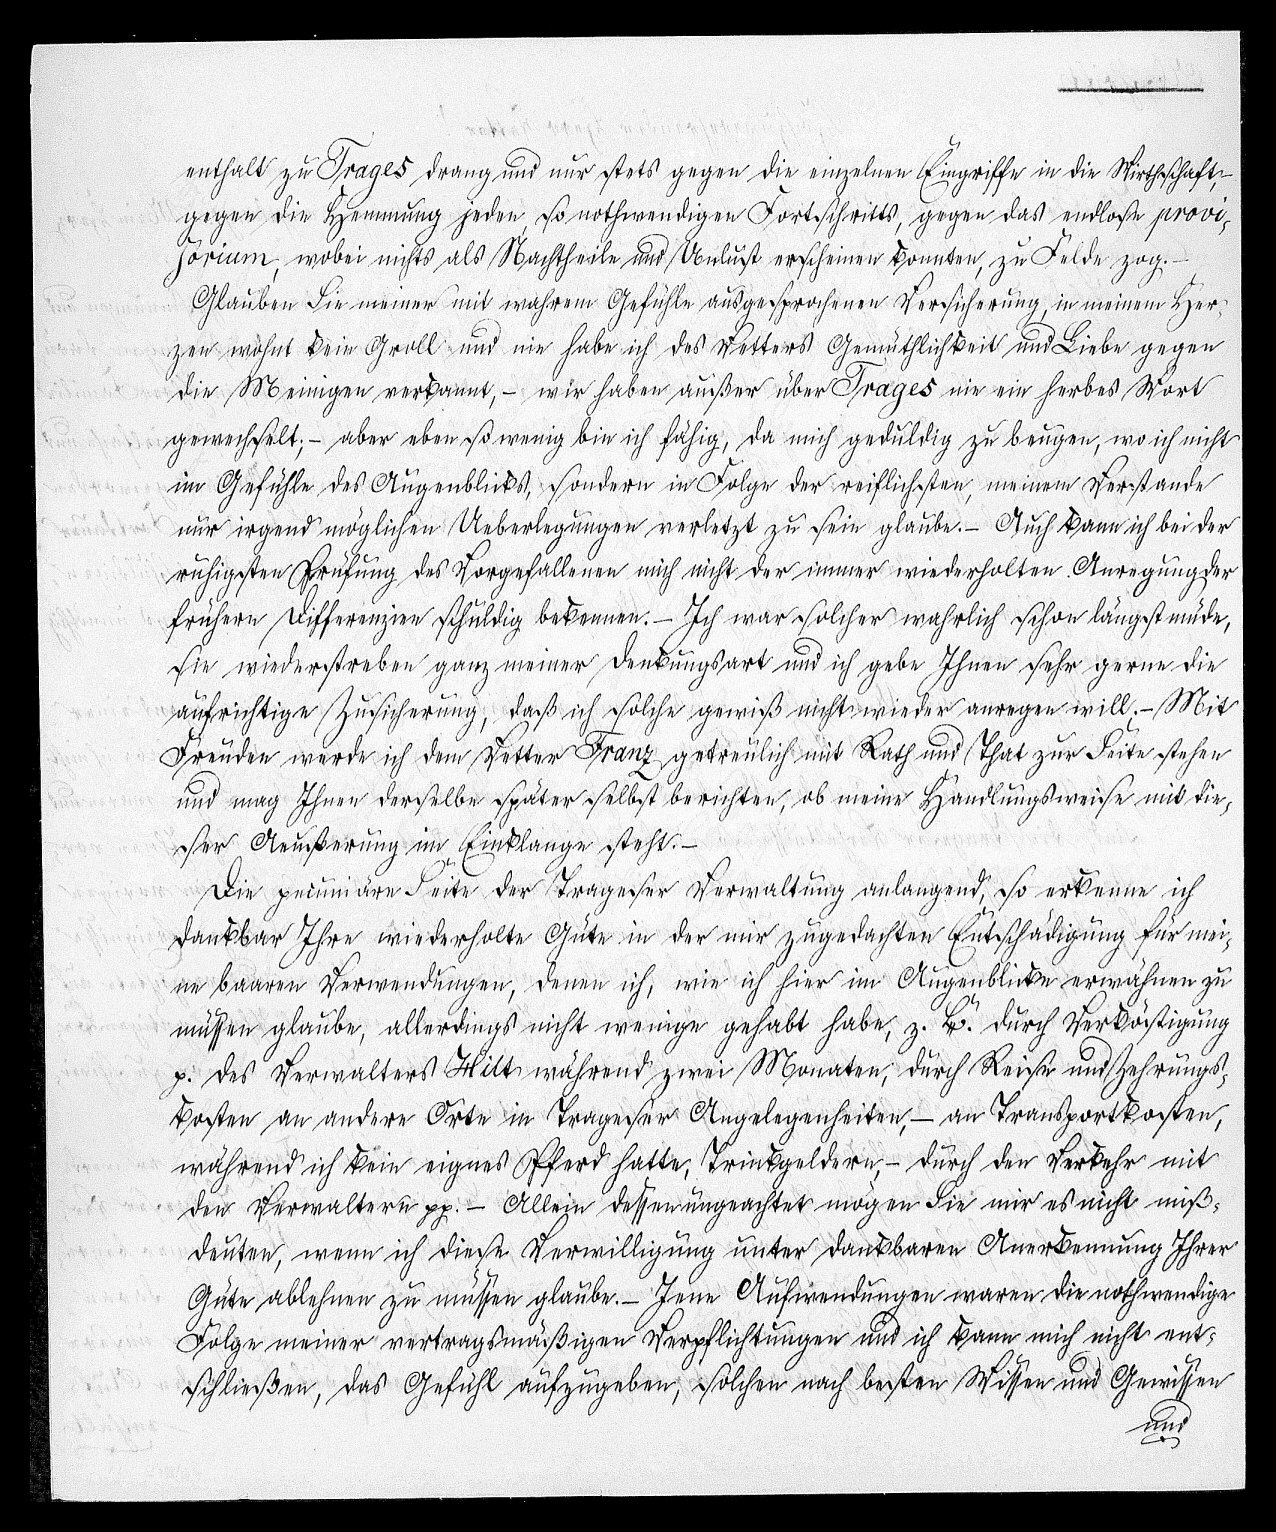 enthalt zu Trages drang und nur stets gegen die einzelnen Eingriffe in die Wirthschaft,-
gegen die Hemmung jeden, so nothwendigen Fortschritts, gegen das endlose provi-
sorium, wobei nichts als Nachtheile und Unlust erscheinen konnten, zu Felde zog.-
Glauben Sie meiner mit wahrem Gefühle ausgesprochenen Versicherung, in meinem Her-
zen wohnt kein Groll und nie habe ich des Vetters Gemüthlichkeit und Liebe gegen
die Meinigen verkannt,- wir haben außer über Trages nie ein herbes Wort
gewechselt;- aber eben so wenig bin ich fähig, da mich geduldig zu beugen, wo ich nicht
im Gefühle des Augenblicks, sondern in Folge der reiflichsten, meinem Verstande
nur irgend möglichen Ueberlegungen verletzt zu sein glaube.- Auch kann ich bei der
ruhigsten Prüfung des Vorgefallenen mich nicht der immer wiederholten Anregung der
frühern Differenzien schuldig bekennen.- Ich war solcher wahrlich schon längst müde,
sie wiederstreben ganz meiner Denkungsart und ich gebe Ihnen sehr gerne die
aufrichtige Zusicherung, daß ich solche gewiß nicht wieder anregen will.- Mit
Freuden werde ich dem Vetter Franz getreulich mit Rath und That zur Seite stehen
und mag Ihnen derselbe später selbst berichten, ob meine Handlungsweise mit die-
ser Aeußerung im Einklange steht.-
Die pecuniäre Seite der Trageser Verwaltung anlangend, so erkenne ich
dankbar Ihre wiederholte Güte in der mir zugedachten Entschädigung für mei-
ne baaren Verwendungen, denen ich, wie ich hier im Augenblicke erwähnen zu
müssen glaube, allerdings nicht wenige gehabt habe, z. B. durch Verköstigung
p. des Verwalters Hilt während zwei Monaten, durch Reise und Zehrungs-
kosten an andere Orte in Trageser Angelegenheiten,- an Transportkosten,
während ich kein eignes Pferd hatte, Trinkgeldern,- durch den Verkehr mit
den Verwaltern pp.- Allein dessenungeachtet mögen Sie mir es nicht miß-
deuten, wenn ich diese Verwilligung unter dankbaren Anerkennung Ihrer
Güte ablehnen zu müssen glaube.- Jene Aufwendungen waren die nothwendige
Folge meiner vertragsmäßigen Verpflichtungen und ich kann mich nicht ent-
schließen, das Gefühl aufzugeben, solchen nach besten Wissen und Gewissen
und